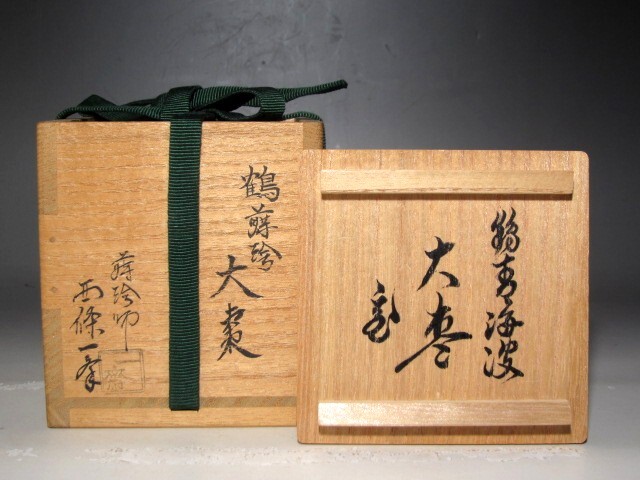 鶴蒔絵
大棗
蒔絵師
西條一峯
鶴青海波
大棗